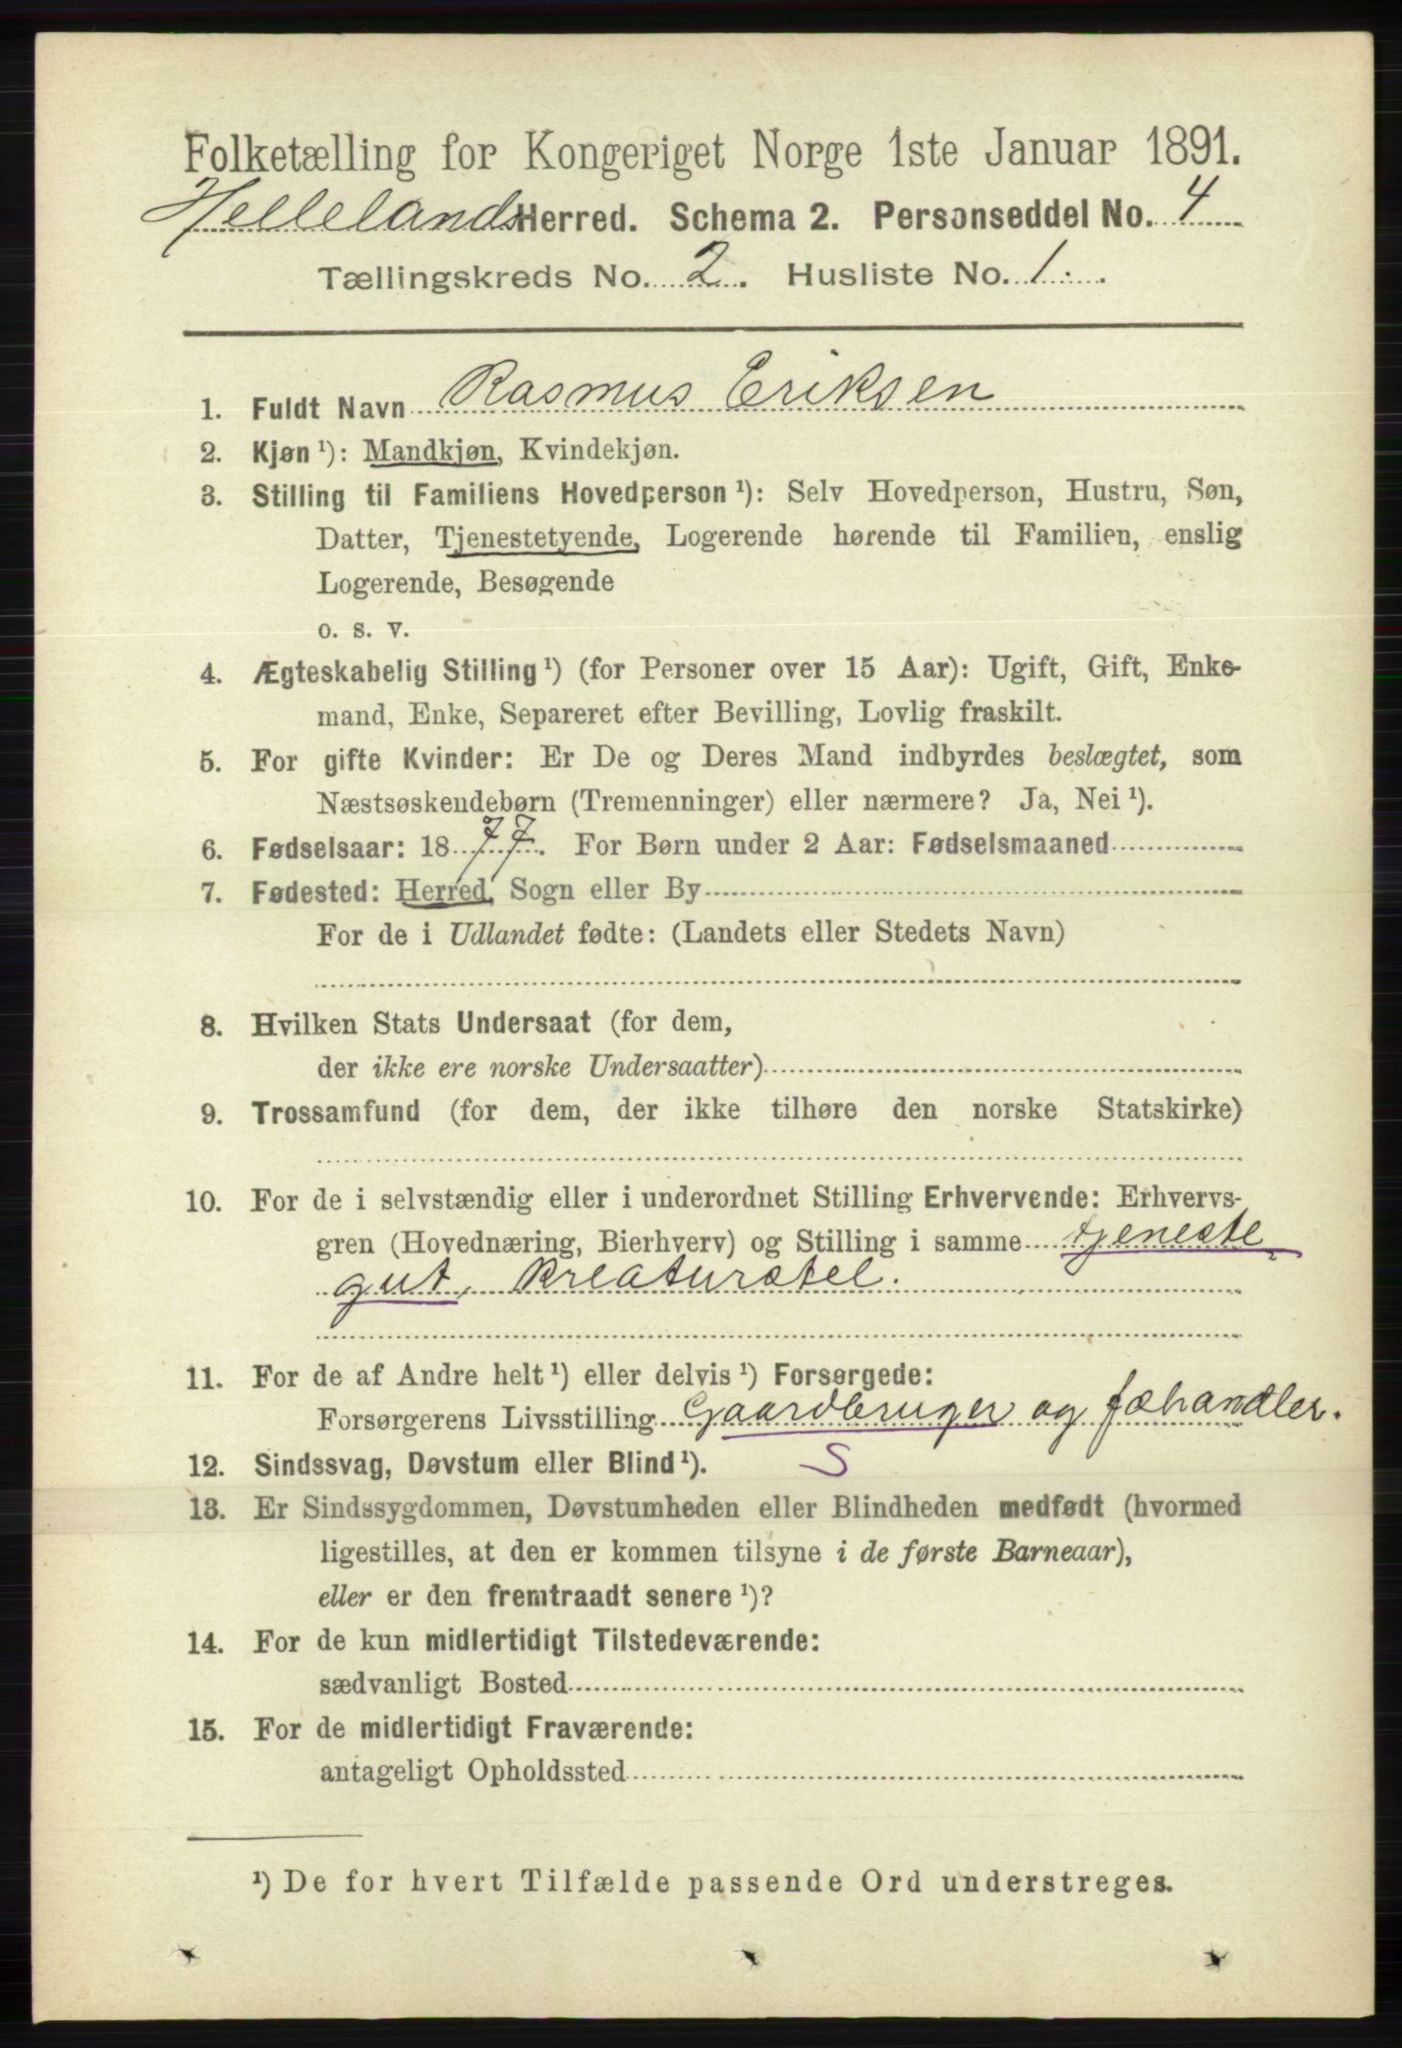 Folketælling for Kongeriget Norge 1ste Januar 1891.
Hellelands Herred. Schema 2. Personseddel No. 4
Tællingskreds No. 2. Husliste No. 1.
1. Fuldt Navn Rasmus Eriksen
2. Kjøn ¹): Mandkjøn, Kvindekjøn.
3. Stilling til Familiens Hovedperson ¹): Selv Hovedperson, Hustru, Søn,
Datter, Tjenestetyende, Logerende hørende til Familien, enslig
Logerende, Besøgende
o. s. v.
4. Ægteskabelig Stilling ¹) (for Personer over 15 Aar): Ugift, Gift, Enke-
mand, Enke, Separeret efter Bevilling, Lovlig fraskilt.
5. For gifte Kvinder: Er De og Deres Mand indbyrdes beslægtet, som
Næstsøskendebørn (Tremenninger) eller nærmere? Ja, Nei ¹).
6. Fødselsaar: 1877. For Børn under 2 Aar: Fødselsmaaned
7. Fødested: Herred, Sogn eller By
For de i Udlandet fødte: (Landets eller Stedets Navn)
8. Hvilken Stats Undersaat (for dem,
der ikke ere norske Undersaatter)
9. Trossamfund (for dem, der ikke tilhøre den norske Statskirke)
10. For de i selvstændig eller i underordnet Stilling Erhvervende: Erhvervs-
gren (Hovednæring, Bierhverv) og Stilling i samme tjeneste-
gut, Kreaturstel.
11. For de af Andre helt ¹) eller delvis ¹) Forsørgede:
Forsørgerens Livsstilling Gaardbruger og fæhandler.
12. Sindssvag, Døvstum eller Blind ¹). S
13. Er Sindssygdommen, Døvstumheden eller Blindheden medfødt (hvormed
ligestilles, at den er kommen tilsyne i de første Barneaar),
eller er den fremtraadt senere ¹)?
14. For de kun midlertidigt Tilstedeværende:
sædvanligt Bosted
15. For de midlertidigt Fraværende:
antageligt Opholdssted
¹) De for hvert Tilfælde passende Ord understreges.